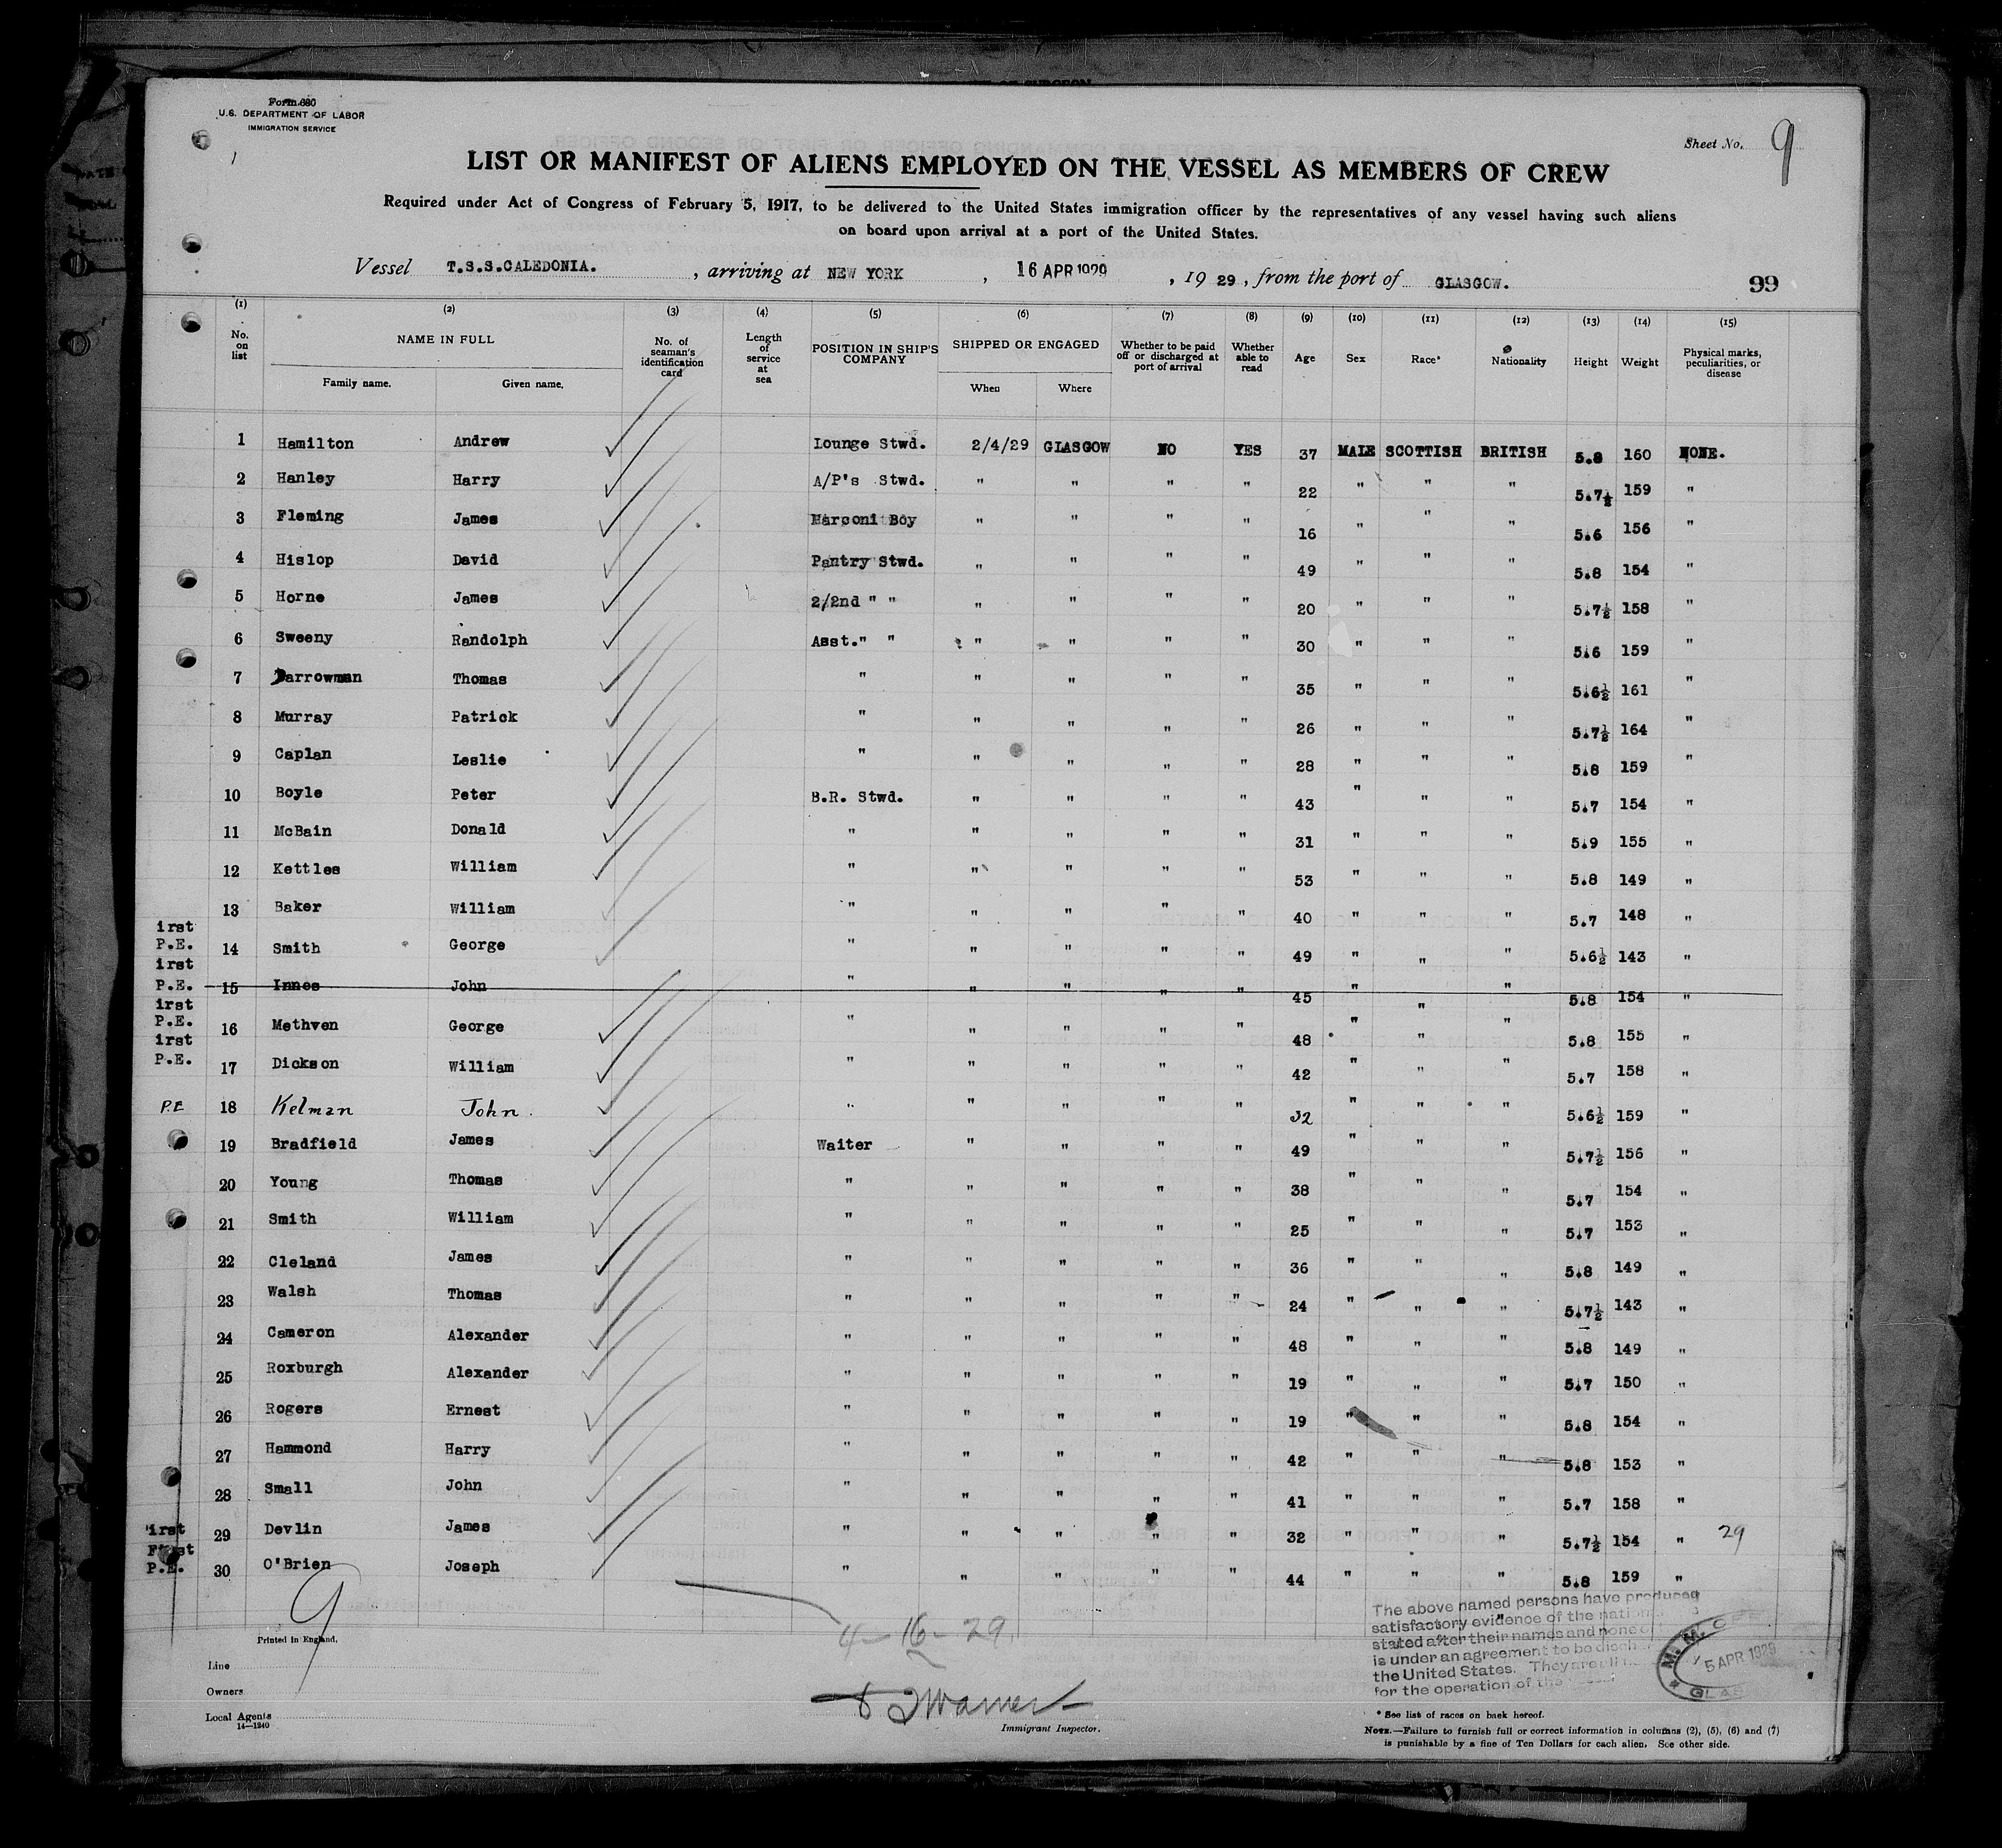 Form 680
U.S. DEPARTMENT OF LABOR
IMMIGRATION SERVICE
Sheet No. 9
LIST OR MANIFEST OF ALIENS EMPLOYED ON THE VESSEL AS MEMBERS OF CREW
Required under Act of Congress of February 5, 1917, to be delivered to the United States immigration officer by the representatives of any vessel having such aliens
on board upon arrival at a port of the United States.
Vessel T.S.S.CALEDONIA. , arriving at NEW YORK , 16 APR 1929 , 19 29 , from the port of GLASGOW. 99
(1) (2) (3) (4) (5) (6) (7) (8) (9) (10) (11) (12) (13) (14) (15)
No. on list NAME IN FULL Family name. Given name. No. of seaman's identification card Length of service at sea POSITION IN SHIP'S COMPANY SHIPPED OR ENGAGED When Where Whether to be paid off or discharged at port of arrival Whether able to read Age Sex Race* Nationality Height Weight Physical marks, peculiarities, or disease
1 Hamilton Andrew Lounge Stwd. 2/4/29 GLASGOW NO YES 37 MALE SCOTTISH BRITISH 5.8 160 NONE.
2 Hanley Harry A/P's Stwd. " " " " 22 " " " 5.7½ 159 "
3 Fleming James Marconi Boy " " " " 16 " " " 5.6 156 "
4 Hislop David Pantry Stwd. " " " " 49 " " " 5.8 154 "
5 Horne James 2/2nd " " " " " " 20 " " " 5.7½ 158 "
6 Sweeny Randolph Asst." " " " " " 30 " " " 5.6 159 "
7 Darrowman Thomas " " " " " 35 " " " 5.6½ 161 "
8 Murray Patrick " " " " " 26 " " " 5.7½ 164 "
9 Caplan Leslie " " " " " 28 " " " 5.8 159 "
10 Boyle Peter B.R. Stwd. " " " " 43 " " " 5.7 154 "
11 McBain Donald " " " " " 31 " " " 5.9 155 "
12 Kettles William " " " " " 53 " " " 5.8 149 "
13 Baker William " " " " " 40 " " " 5.7 148 "
irst
P.E. 14 Smith George " " " " " 49 " " " 5.6½ 143 "
irst
P.E. 15 Innes John " " " " " 45 " " " 5.8 154 "
irst
P.E. 16 Methven George " " " " " 48 " " " 5.8 155 "
irst
P.E. 17 Dickson William " " " " " 42 " " " 5.7 158 "
P.E 18 Kelman John. " " " " " 32 " " " 5.6½ 159 "
19 Bradfield James Waiter " " " " 49 " " " 5.7½ 156 "
20 Young Thomas " " " " " 38 " " " 5.7 154 "
21 Smith William " " " " " 25 " " " 5.7 153 "
22 Cleland James " " " " " 36 " " " 5.8 149 "
23 Walsh Thomas " " " " " 24 " " " 5.7½ 143 "
24 Cameron Alexander " " " " " 48 " " " 5.8 149 "
25 Roxburgh Alexander " " " " " 19 " " " 5.7 150 "
26 Rogers Ernest " " " " " 19 " " " 5.8 154 "
27 Hammond Harry " " " " " 42 " " " 5.8 153 "
28 Small John " " " " " 41 " " " 5.7 158 "
irst 29 Devlin James " " " " " 32 " " " 5.7½ 154 " 29
First
P.E. 30 O'Brien Joseph " " " " " 44 " " " 5.8 159 "
9
4-16-29
The above named persons have produced
satisfactory evidence of the
stated after their names and none of
is under an agreement to be
the United States. They are
for the operation of the
M.M. 5 APR 1929
Printed in England.
Line
Owners
Local Agents
14—1240
Immigrant Inspector.
* See list of races on back hereof.
NOTE.—Failure to furnish full or correct information in columns (2), (5), (6) and (7)
is punishable by a fine of Ten Dollars for each alien. See other side.